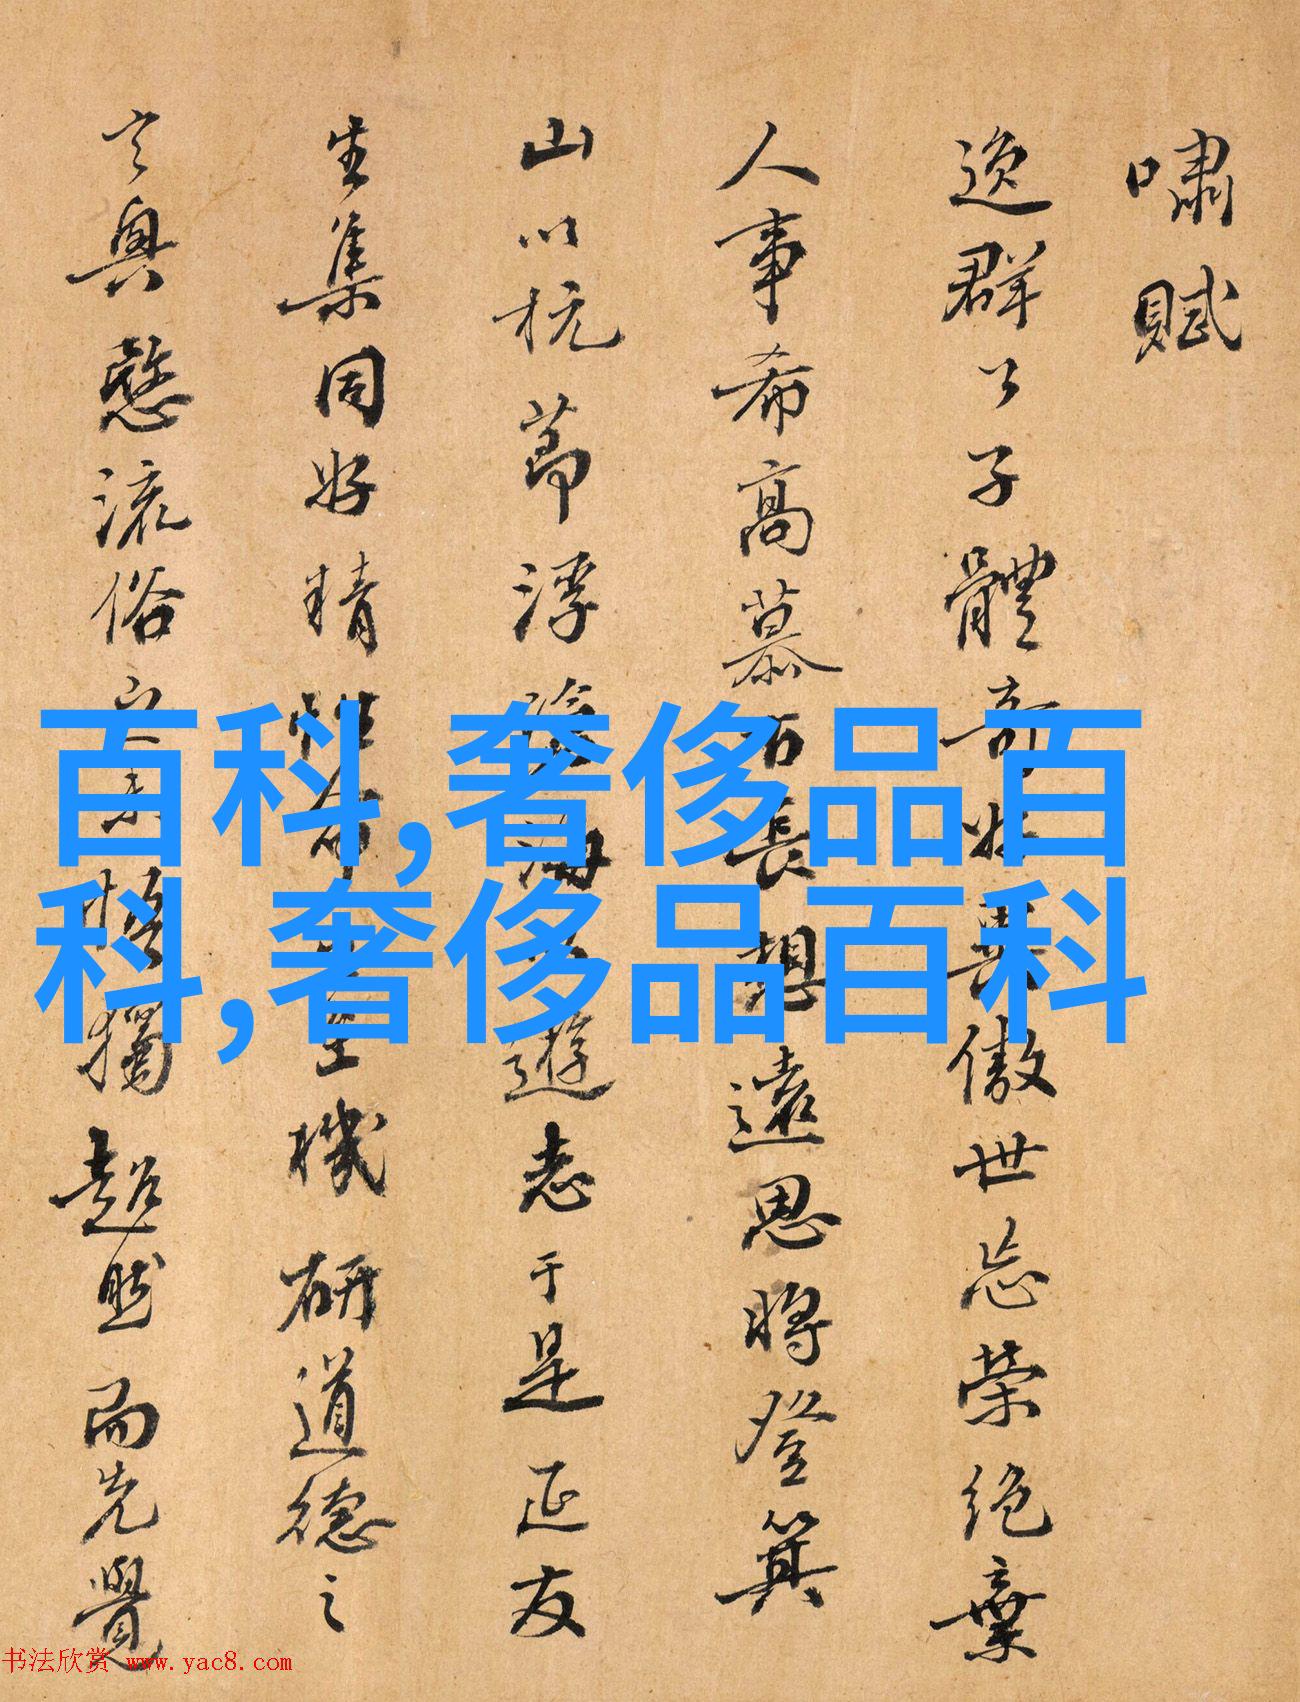 嘯賦
逸群公子體奇好異傲世忘榮絕棄
人事希高慕古長想遠思將登箕
山以抗節浮滄海遊志于是延友
生集同好精性命至機研道德之
玄奧愍流俗未悟獨超然而先覺
百科,奢侈品百
科,奢侈品百科
书法欣赏 www.yac8.com